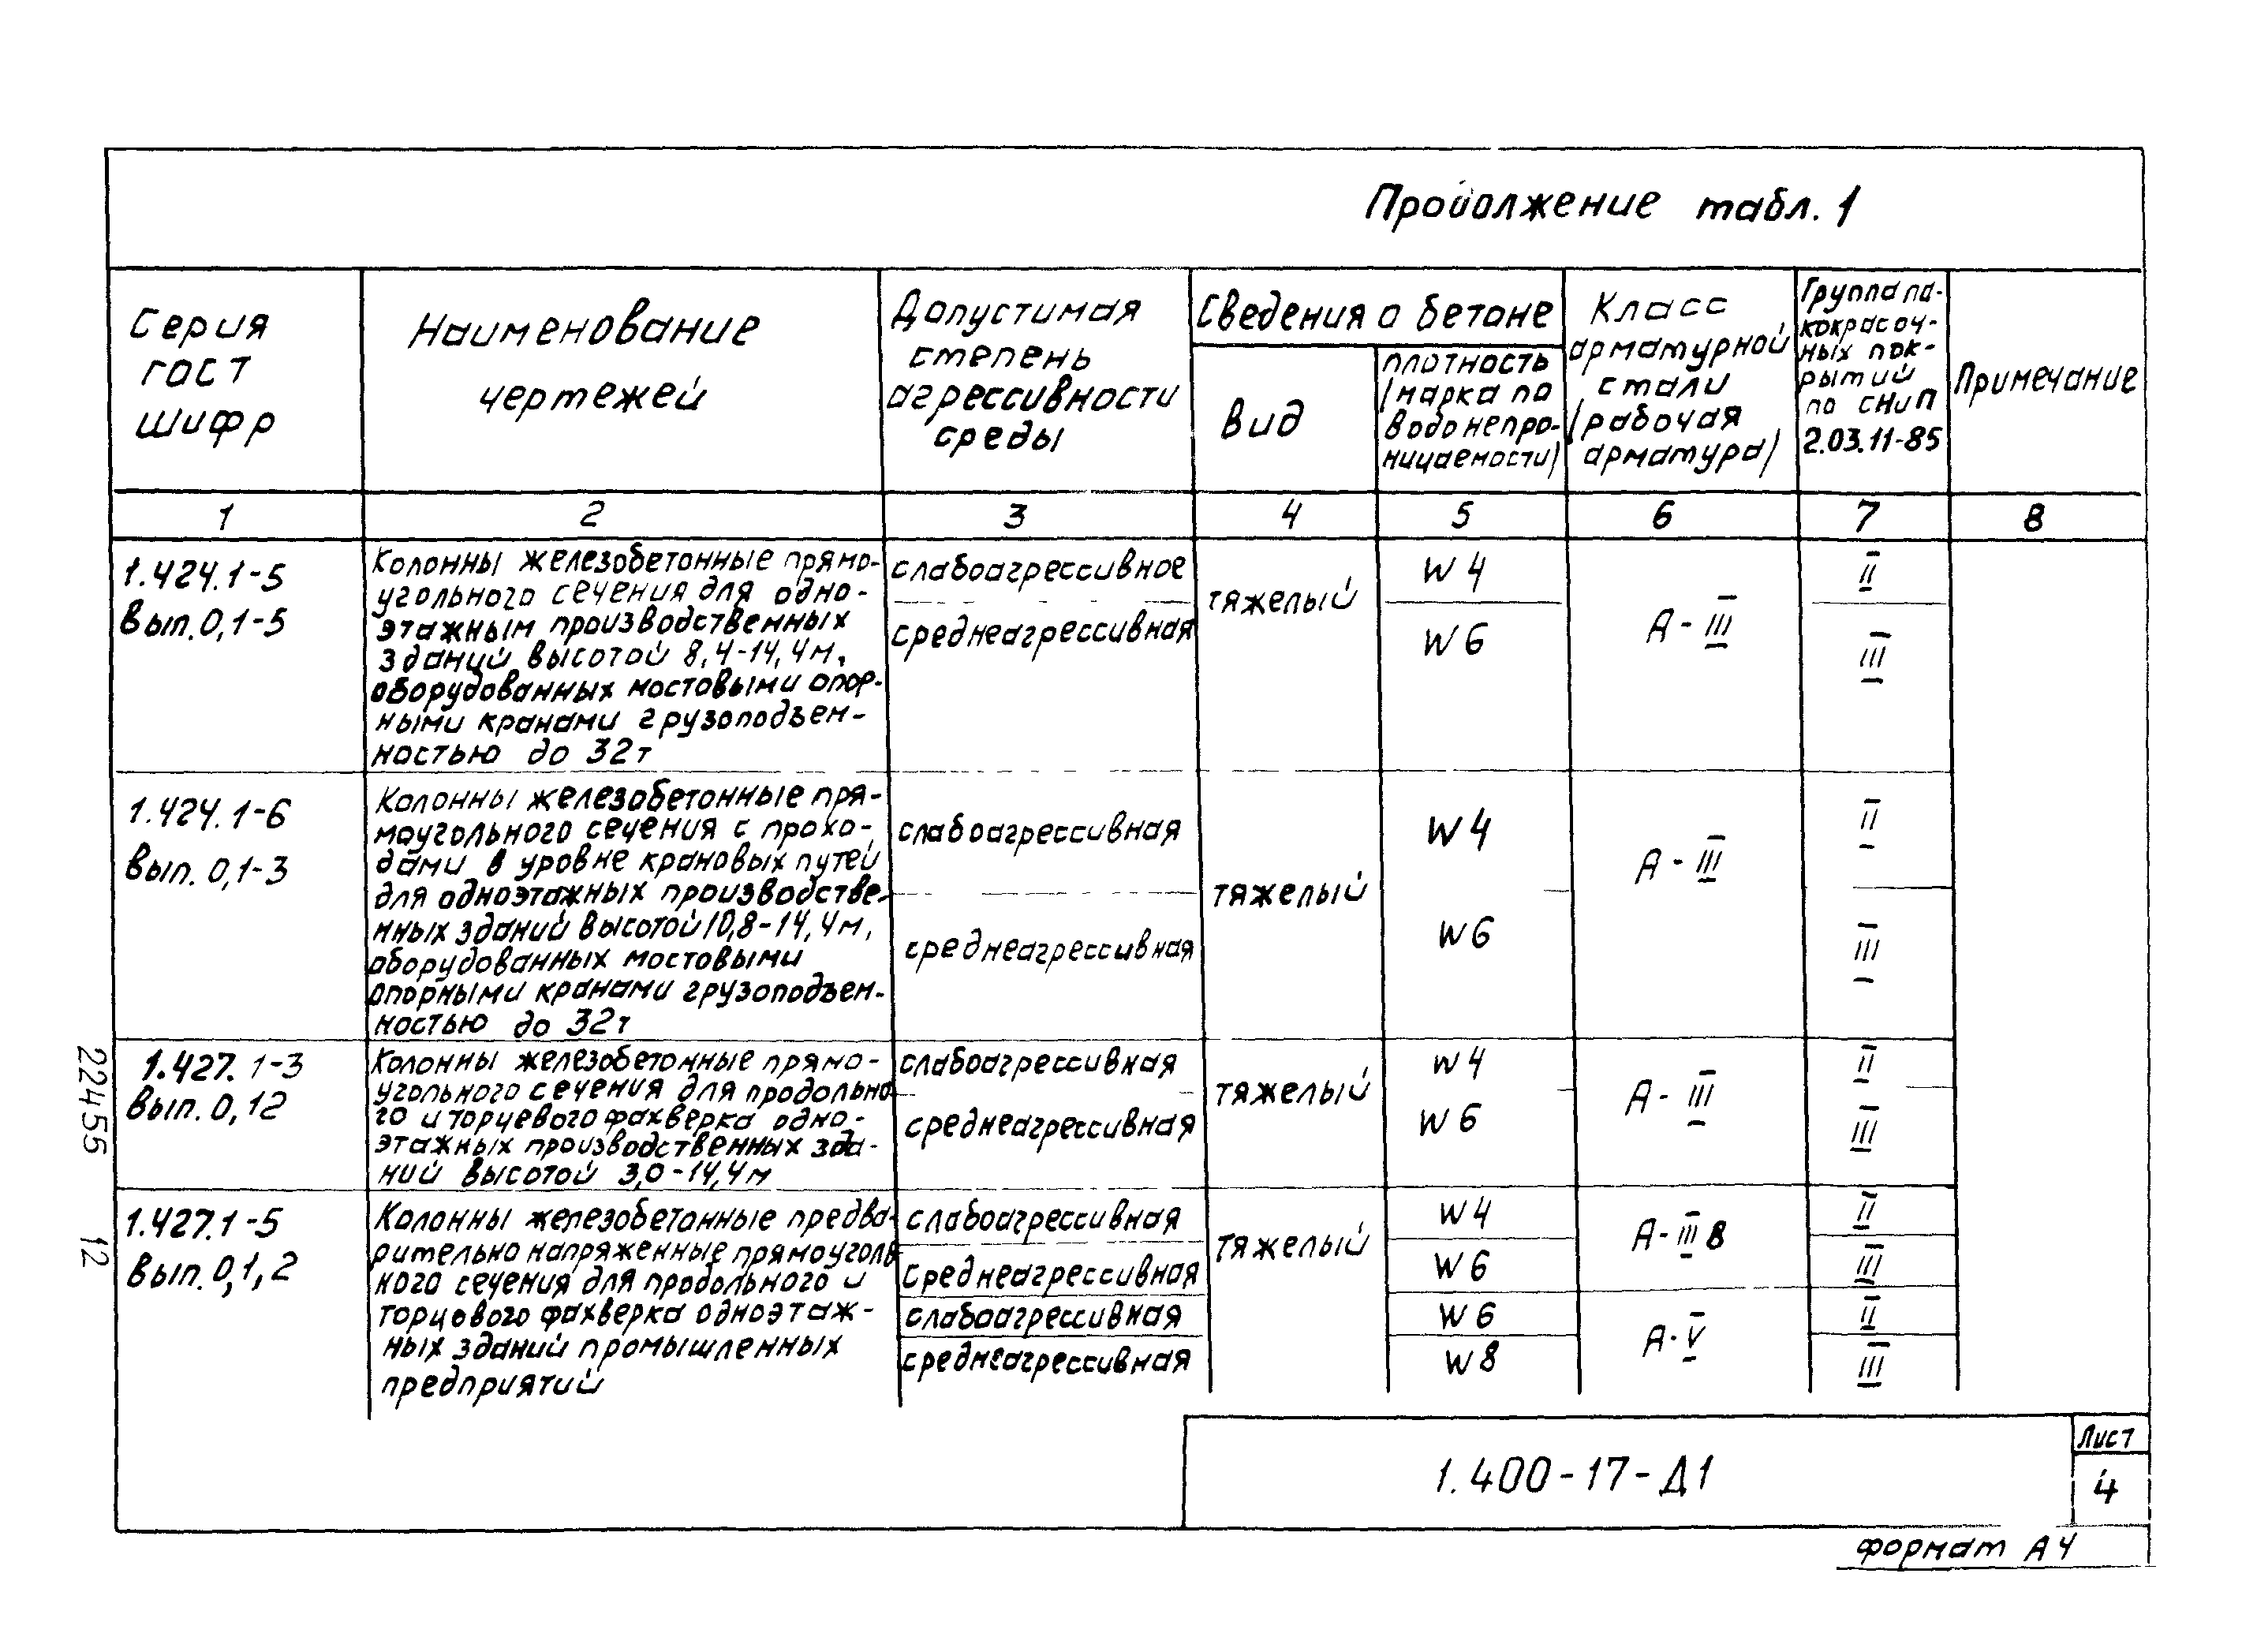 Продолжение табл. 1
Серия
гост
шифр
Наименование
чертежей
Допустимая
степень
агрессивности
среды
Сведения о бетоне
вид
плотность
(марка по
водонепро-
ницаемости)
Класс
арматурной
стали
(рабочая
арматура)
Группа ла-
кокрасоч-
ных пок-
рытий
по СНиП
2.03.11-85
Примечание
1 2 3 4 5 6 7 8
1.424.1-5
Вып. 0,1-5
Колонны железобетонные прямо-
угольного сечения для одно-
этажным производственных
зданий высотой 8,4-14,4м,
оборудованных мостовыми опор-
ными кранами грузоподъем-
ностью до 32т
слабоагрессивное
среднеагрессивная
тяжелый
W4
W6
А-III
II
III
1.424.1-6
Вып. 0,1-3
Колонны железобетонные пря-
моугольного сечения с прохо-
дами в уровне крановых путей
для одноэтажных производстве-
нных зданий высотой 10,8-14,4м,
оборудованных мостовыми
опорными кранами грузоподъем-
ностью до 32т
слабоагрессивная
среднеагрессивная
тяжелый
W4
W6
А-III
II
III
1.427.1-3
Вып. 0,12
Колонны железобетонные прямо-
угольного сечения для продольно-
го и торцевого фахверка одно-
этажных производственных зда-
ний высотой 3,0-14,4м
слабоагрессивная
среднеагрессивная
тяжелый
W4
W6
А-III
II
III
1.427.1-5
Вып. 0,1,2
Колонны железобетонные предва-
рительно напряженные прямоуголь
ного сечения для продольного и
торцового фахверка одноэтаж-
ных зданий промышленных
предприятий
слабоагрессивная
среднеагрессивная
слабоагрессивная
среднеагрессивная
тяжелый
W4
W6
W6
W8
А-IIIв
А-V
II
III
II
III
22455 12
1.400-17-Д1
Лист
4
формат А4